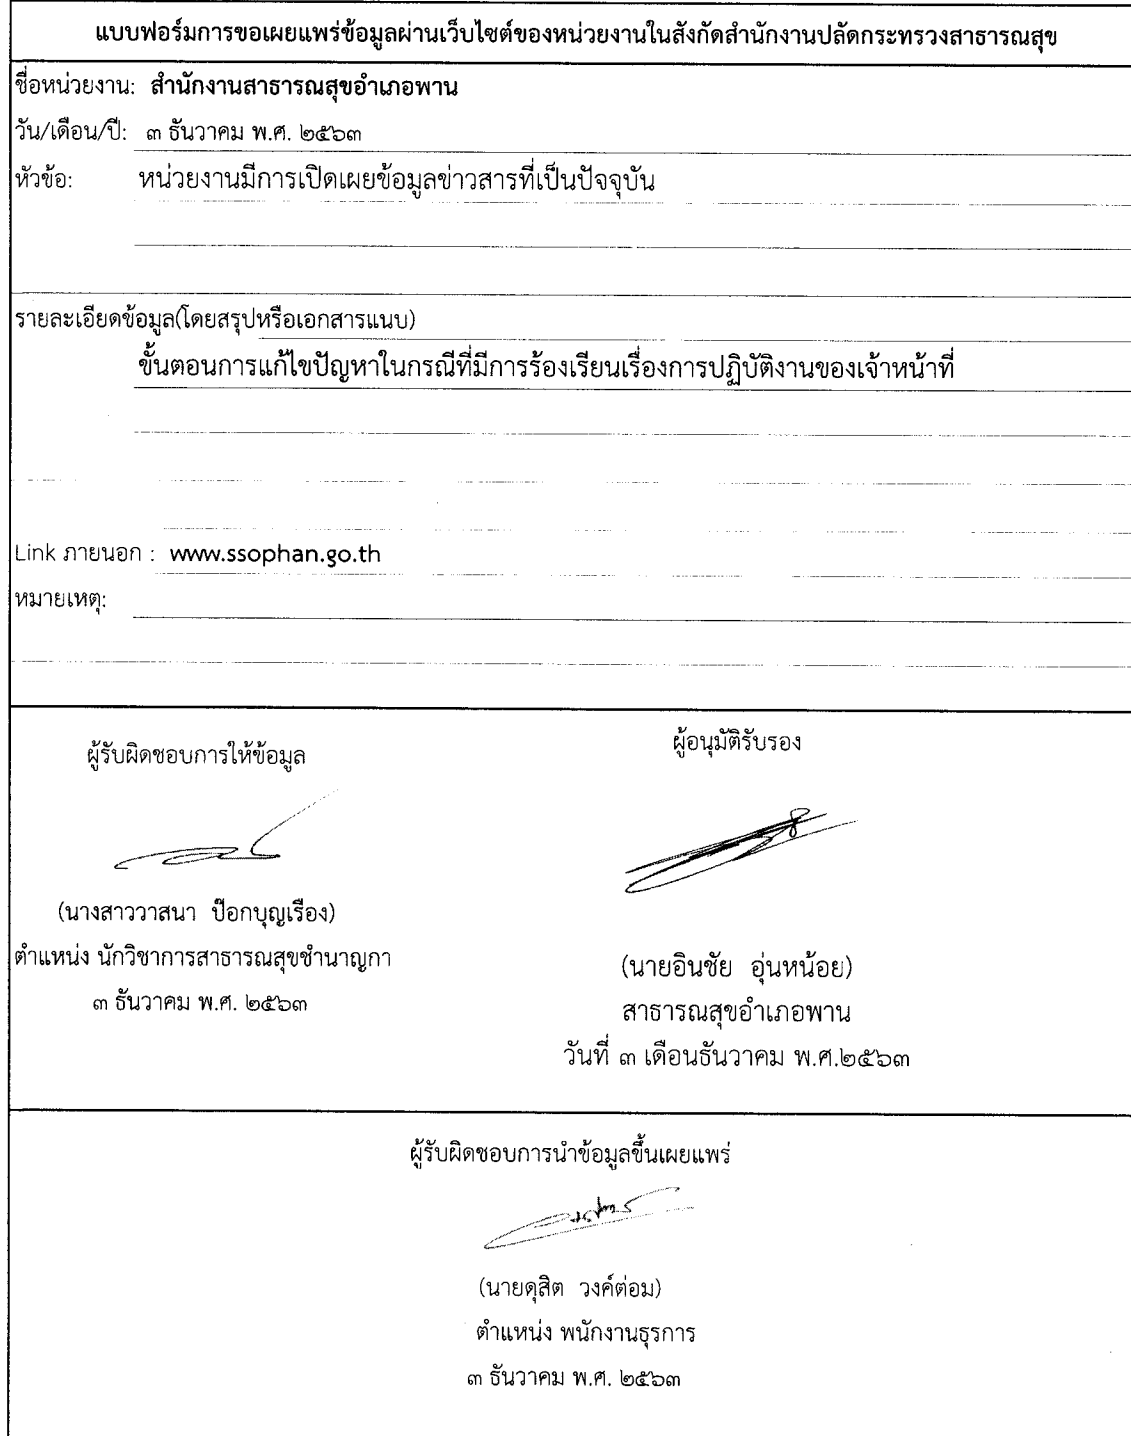 แบบฟอร์มการขอเผยแพร่ข้อมูลผ่านเว็บไซต์ของหน่วยงานในสังกัดสำนักงานปลัดกระทรวงสาธารณสุข
ชื่อหน่วยงาน: สำนักงานสาธารณสุขอำเภอพาน
วัน/เดือน/ปี: ๓ ธันวาคม พ.ศ. ๒๕๖๓
หัวข้อ: หน่วยงานมีการเปิดเผยข้อมูลข่าวสารที่เป็นปัจจุบัน
รายละเอียดข้อมูล(โดยสรุปหรือเอกสารแนบ)
ขั้นตอนการแก้ไขปัญหาในกรณีที่มีการร้องเรียนเรื่องการปฏิบัติงานของเจ้าหน้าที่
Link ภายนอก : www.ssophan.go.th
หมายเหตุ:
ผู้รับผิดชอบการให้ข้อมูล
(นางสาววาสนา ป๊อกบุญเรือง)
ตำแหน่ง นักวิชาการสาธารณสุขชำนาญกา
๓ ธันวาคม พ.ศ. ๒๕๖๓
ผู้อนุมัติรับรอง
(นายอินชัย อุ่นหน้อย)
สาธารณสุขอำเภอพาน
วันที่ ๓ เดือนธันวาคม พ.ศ.๒๕๖๓
ผู้รับผิดชอบการนำข้อมูลขึ้นเผยแพร่
(นายดุสิต วงค์ต่อม)
ตำแหน่ง พนักงานธุรการ
๓ ธันวาคม พ.ศ. ๒๕๖๓